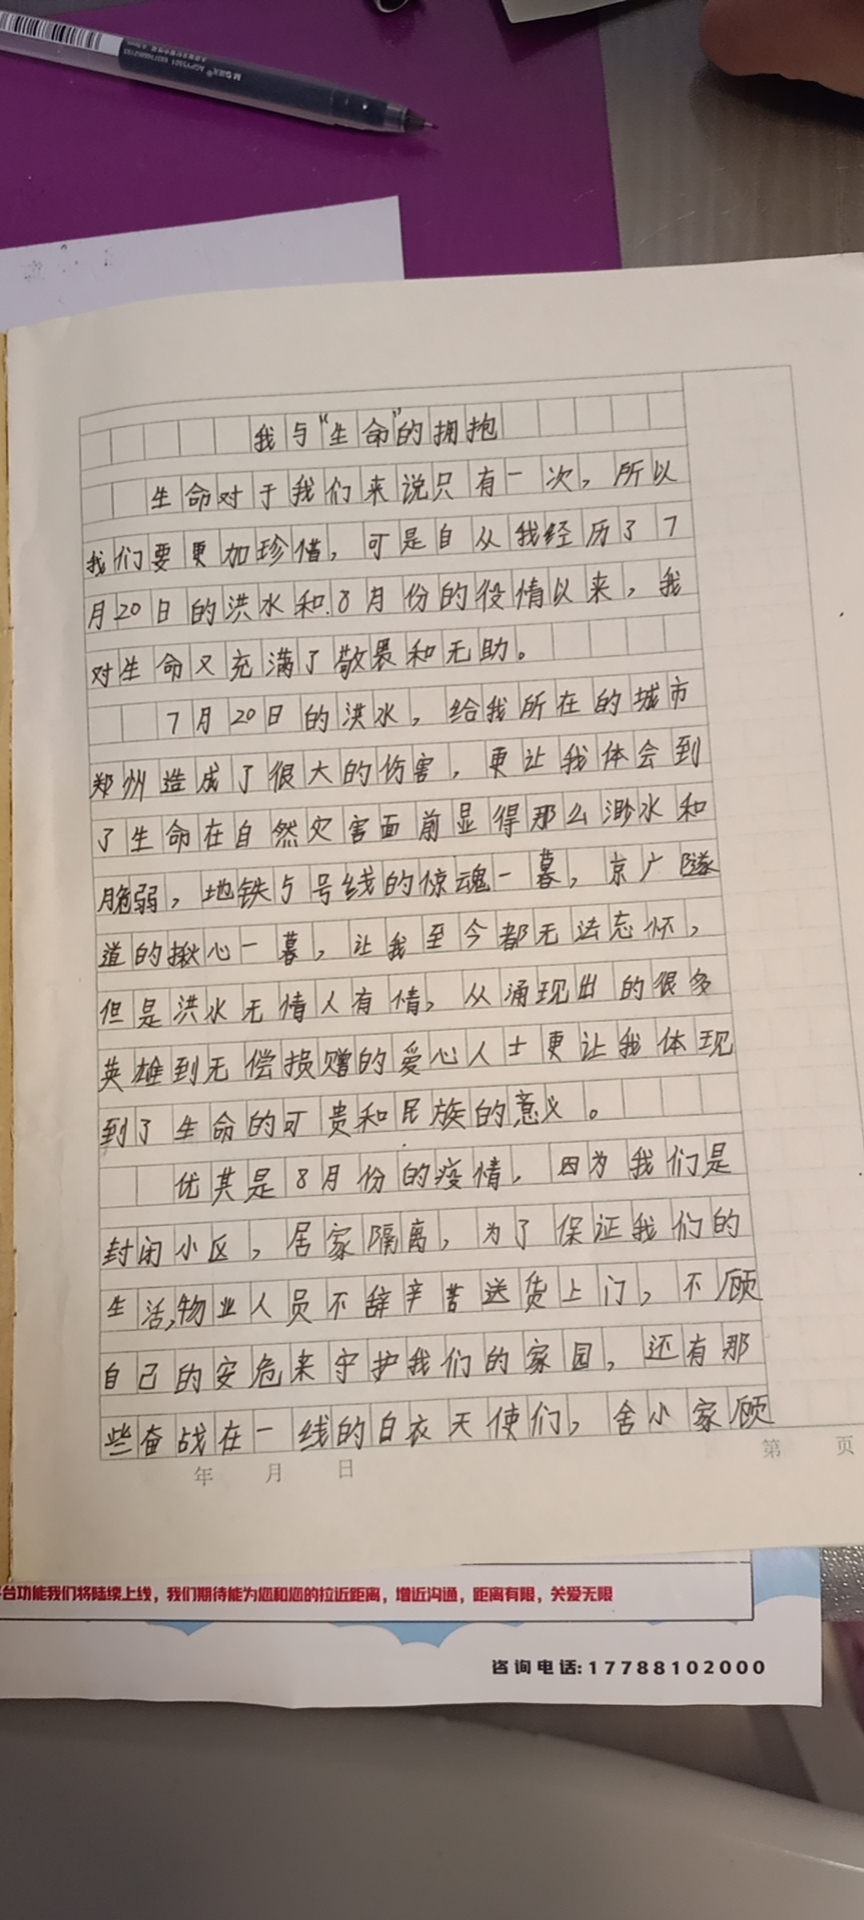 我与“生命”的拥抱
生命对于我们来说只有一次，所以
我们要更加珍惜，可是自从我经历了7
月20日的洪水和8月份的役情以来，我
对生命又充满了敬畏和无助。
7月20日的洪水，给我所在的城市
郑州造成了很大的伤害，更让我体会到
了生命在自然灾害面前显得那么渺水和
脆弱，地铁5号线的惊魂一暮，京广隧
道的揪心一暮，让我至今都无法忘怀，
但是洪水无情人有情，从涌现出的很多
英雄到无偿损赠的爱心人士更让我体现
到了生命的可贵和民族的意义。
优其是8月份的疫情，因为我们是
封闭小区，居家隔离，为了保证我们的
生活，物业人员不辞辛苦送货上门，不顾
自己的安危来守护我们的家园，还有那
些奋战在一线的白衣天使们，舍小家顾
年 月 日
第 页
台功能我们将陆续上线，我们期待能为您和您的拉近距离，增近沟通，距离有限，关爱无限
咨询电话:17788102000